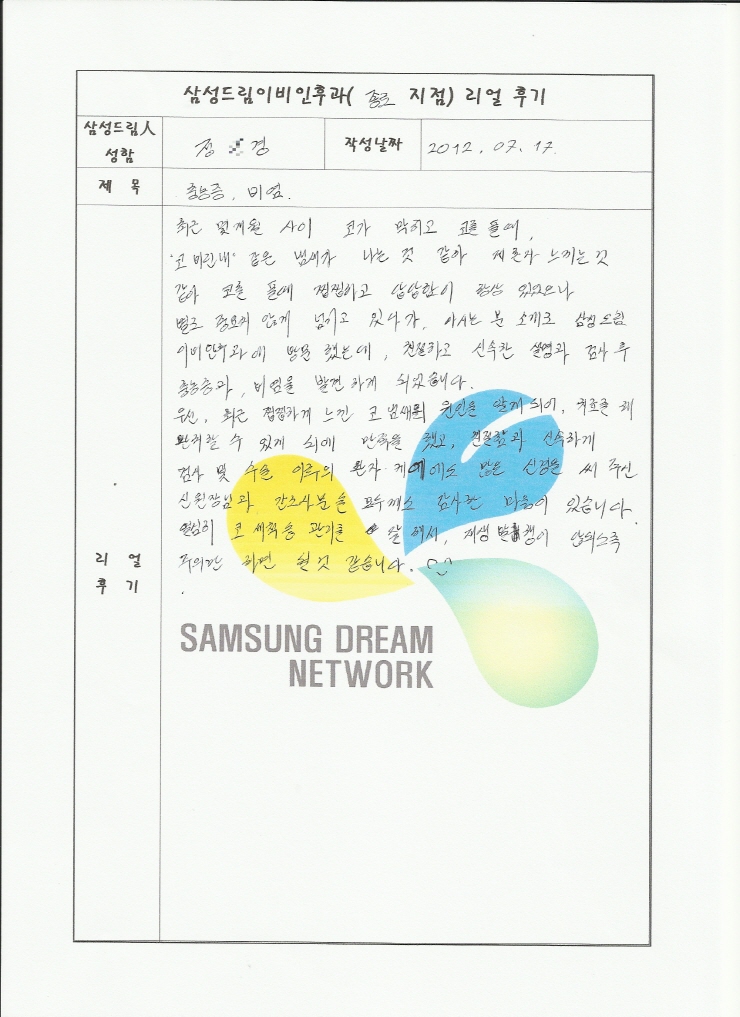 삼성드림이비인후과( 종로 지점) 리얼 후기
삼성드림人
성함
정 경
작성날짜
2012. 07. 17
제 목
축농증, 비염.
최근 몇개월 사이 코가 막히고 코를 풀때,
"코 비린내" 같은 냄새가 나는 것 같아 제 혼자 느끼는것
같아 코를 풀때 찝찝하고 답답함이 항상 있었으나
별로 중요치 않게 넘기고 있다가, 아시는 분 소개로 삼성드림
이비인후과에 방문 했는데, 친절하고 신속한 설명과 검사 후
축농증과, 비염을 발견 하게 되었습니다.
우선, 최근 찝찝하게 느낀 코 냄새의 원인을 알게되어, 치료를 해
완치할 수 있게 되에 만족을 했고, 친절함과 신속하게
검사 및 수술 이후의 환자 케어에도 많은 신경을 써 주신
신원장님과 간호사분들 모두께소 감사한 마음이 있습니다.
열심히 코 세척 등 관리를 잘 해서, 재생 발생이 안되도록
주의만 하면 될것 같습니다.
리 얼
후 기
SAMSUNG DREAM
NETWORK